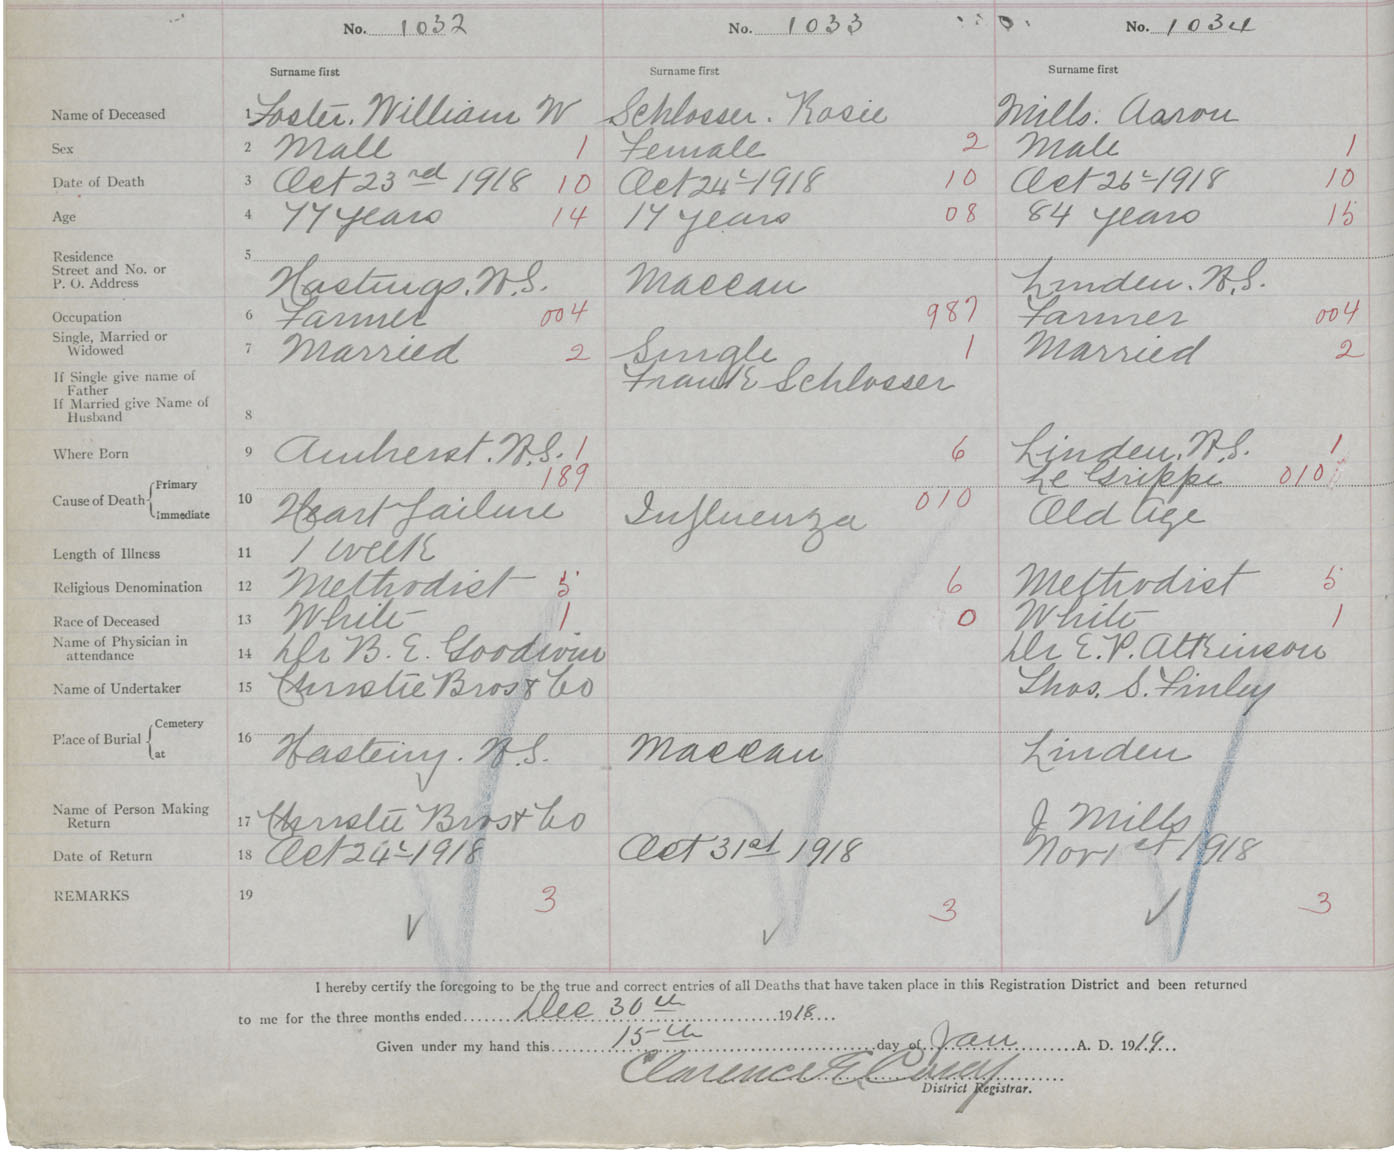 No. 1032 No. 1033 No. 1034
Surname first Surname first Surname first
Name of Deceased 1 Foster. William W Schlosser. Rosie Mills. Aaron
Sex 2 Male 1 Female 2 Male 1
Date of Death 3 Oct 23rd 1918 10 Oct 24 1918 10 Oct 26 1918 10
Age 4 77 years 14 17 years 08 84 years 15
Residence 5
Street and No. or
P. O. Address Hastings. N.S. Maccan Linden. N.S.
Occupation 6 Farmer 004 987 Farmer 004
Single, Married or
Widowed 7 Married 2 Single 1 Married 2
If Single give name of
Father Frank Schlosser
If Married give Name of
Husband 8
Where Born 9 Amherst. N.S. 1 6 Linden. N.S. 1
Primary 189 Le Grippe 010
Cause of Death 10 010
Immediate Heart failure Influenza Old Age
Length of Illness 11 1 week
Religious Denomination 12 Methodist 5 6 Methodist 5
Race of Deceased 13 White 1 0 White 1
Name of Physician in
attendance 14 Dr B. E. Goodwin Dr E. P. Atkinson
Name of Undertaker 15 Christie Bros & Co Thos. S. Finley
Cemetery
Place of Burial 16
at N.S. Maccan Linden
Name of Person Making
Return 17 Christie Bros & Co J Mills
Date of Return 18 Oct 24 1918 Oct 31st 1918 Nov 1st 1918
REMARKS 19 3 3 3
I hereby certify the foregoing to be the true and correct entries of all Deaths that have taken place in this Registration District and been returned
to me for the three months ended Dec 30th 1918
Given under my hand this 15th day of Jan A. D. 1919
Clarence
District Registrar.